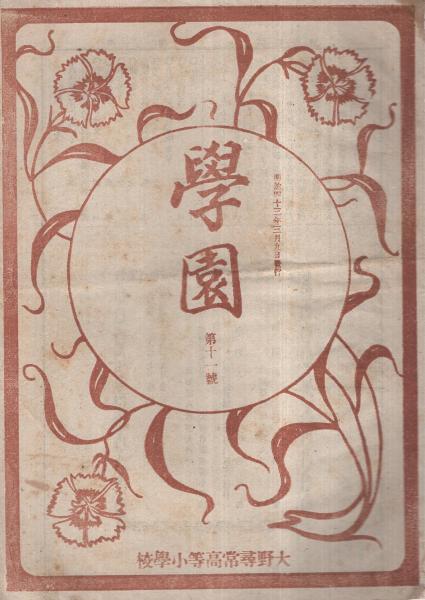 明治四十三年三月九日發行
學園
第十一號
大野尋常高等小學校